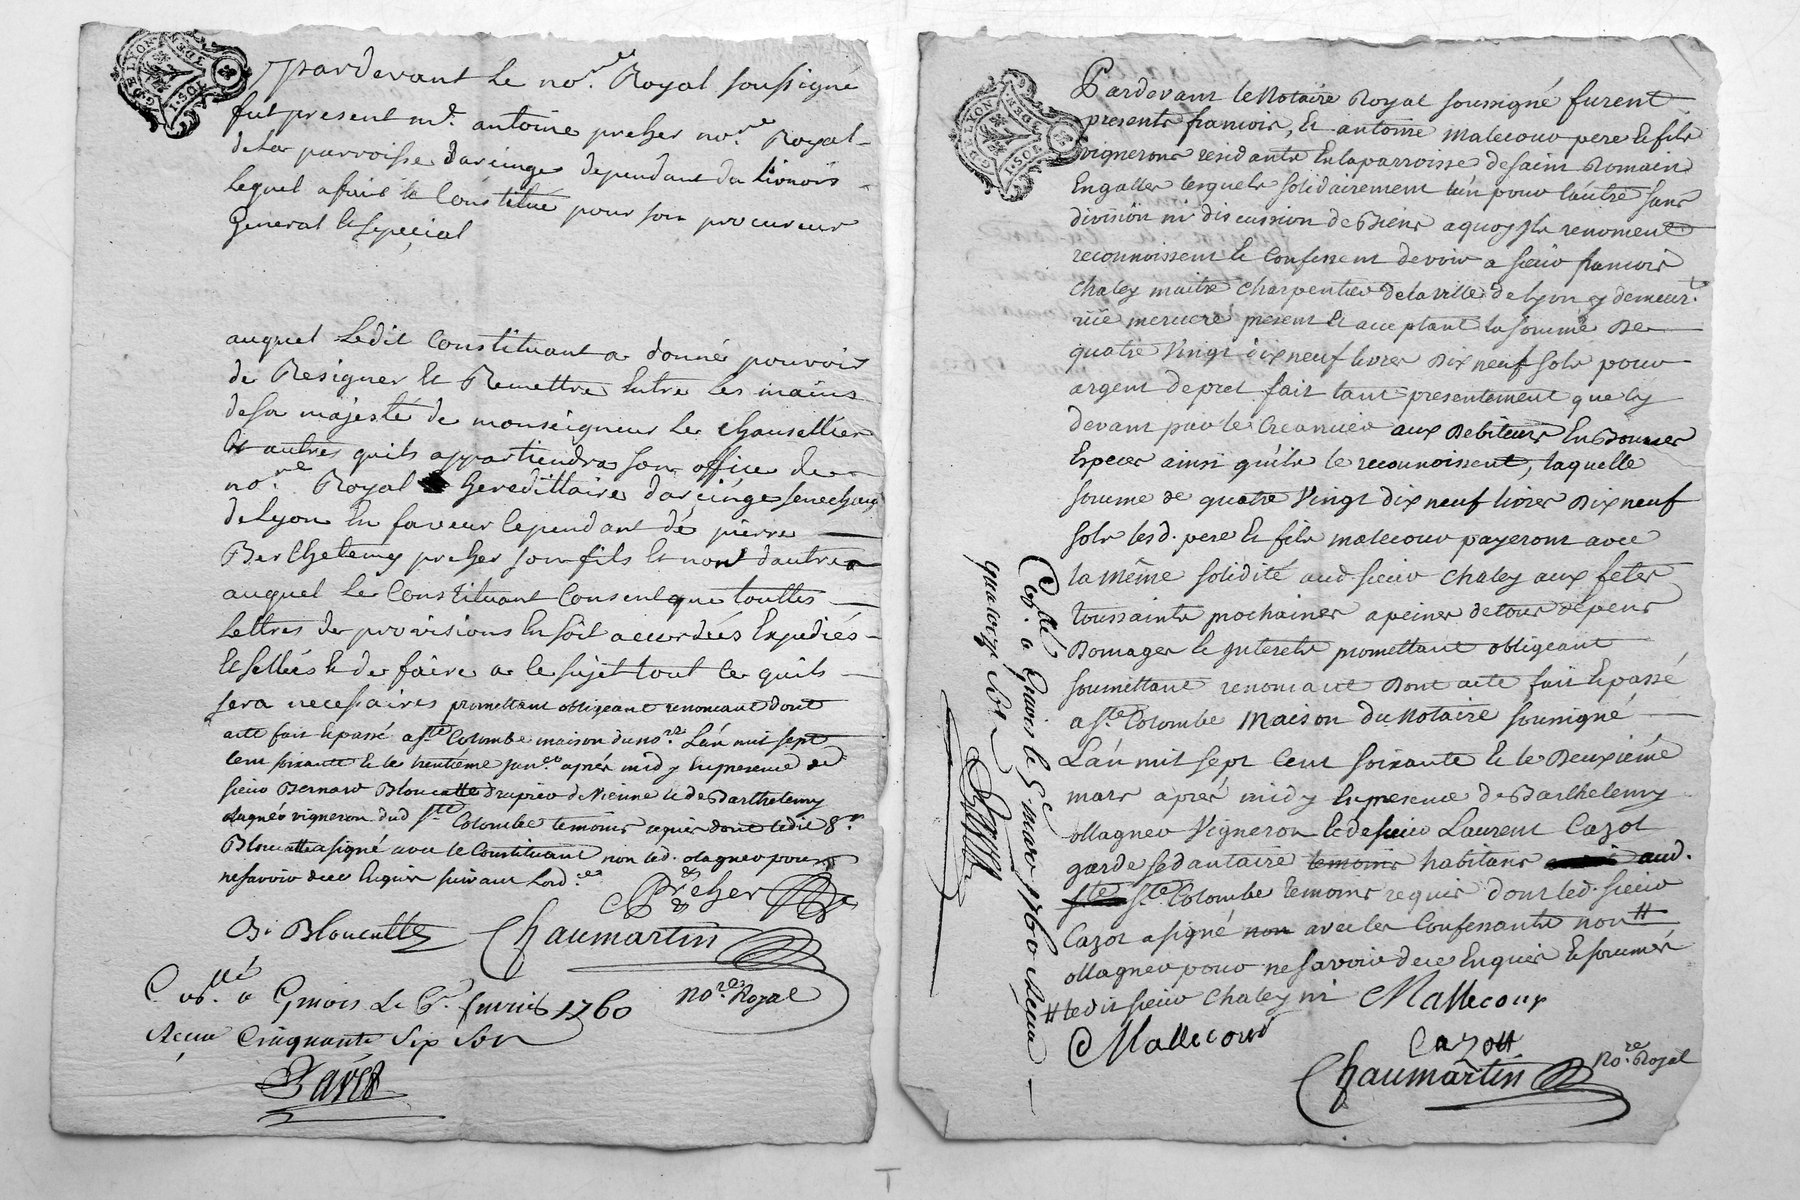 G. DE LYON
1 SOL 8 DE
Pardevant Le no.re Royal soussigné
fut present me. antoine preher no.re Royal
de la parroisse darcinge dependant du lionois
lequel a fait et Constitué pour son procureur
General et special
auquel Ledit Constituant a donné pouvoir
de Resigner et Remettre Entre les mains
de sa majesté de monseigneur Le Chansellier
et autres quils appartiendra son office de
no.re Royal hereditaire darcinge senechaus
de Lyon En faveur cependant de pierre
Berthelemy preher son fils et non dautre
auquel Le Constituant Consent que touttes
Lettres de provisions En soit accordées Expediés
et sellées et de faire a ce sujet tout ce quils
sera necessaires promettant obligeant renoncant dont
acte fait et passé a ste Colombe maison du no.re Lan mil sept
cent soixante et le trentieme janv.er après midy En presence de
sieur Bernard Bloucatte drapier de Vienne et de Barthelemy
Magnéo vigneron dud ste Colombe temoins requis dont ledit sr.
Bloucatte a signé avec le Constituant non led. Magneo pour
ne savoir de ce Enquis suivant Lord.ce
Preher
B. Bloucatte Chaumartin
no.re Royal
C. le a Givois Le 6. fevrier 1760
Receu Cinquante Six Sols
G. DE LYON
1 SOL 8 DE
Pardevant le Notaire Royal soussigné furent
presents francois, et antoine Malecour pere et fils
vignerons residants En la parroisse de saint Romain
En gallier lesquels solidairement lun pour lautre sans
division ni discussion de Biens a quoy ils renoncent
reconnoissent et Confessent devoir a sieur francois
Chaley maitre Charpentier de la ville de Lyon y demeur.t
ruë merciere present et acceptant la somme De
quatre Vingt dix neuf livres Dix neuf sols pour
argent de pret fait tant presentement que cy
devant par le Creancier aux Debiteurs En Bonnes
Especes ainsi quils le reconnoissent, laquelle
somme de quatre Vingt dix neuf livres Dix neuf
sols lesd. pere et fils malecour payeront avec
la même solidité aud. sieur Chaley aux fetes
toussaints prochaines a peines de tous depens
Domages et Interets promettant obligeant
soumettant renoncant Dont acte fait et passé
a ste. Colombe Maison du Notaire soussigné
Lan mil sept Cent soixante et le Deuxiéme
mars après midy En presence de Barthelemy
Magneo Vigneron et de sieur Laurent Cazot
garde sedantaire temoins habitans aud.
ste. Colombe temoins requis dont led. sieur
Cazot a signé non avec les Confessants non #
Magneo pour ne savoir de ce Enquis et sommés
# ledit sieur Chaley ni Mallecour
Mallecour
Cazott
Chaumartin no.re Royal
C. lé a Givois le 5e mars 1760 Receu
quatorze sols